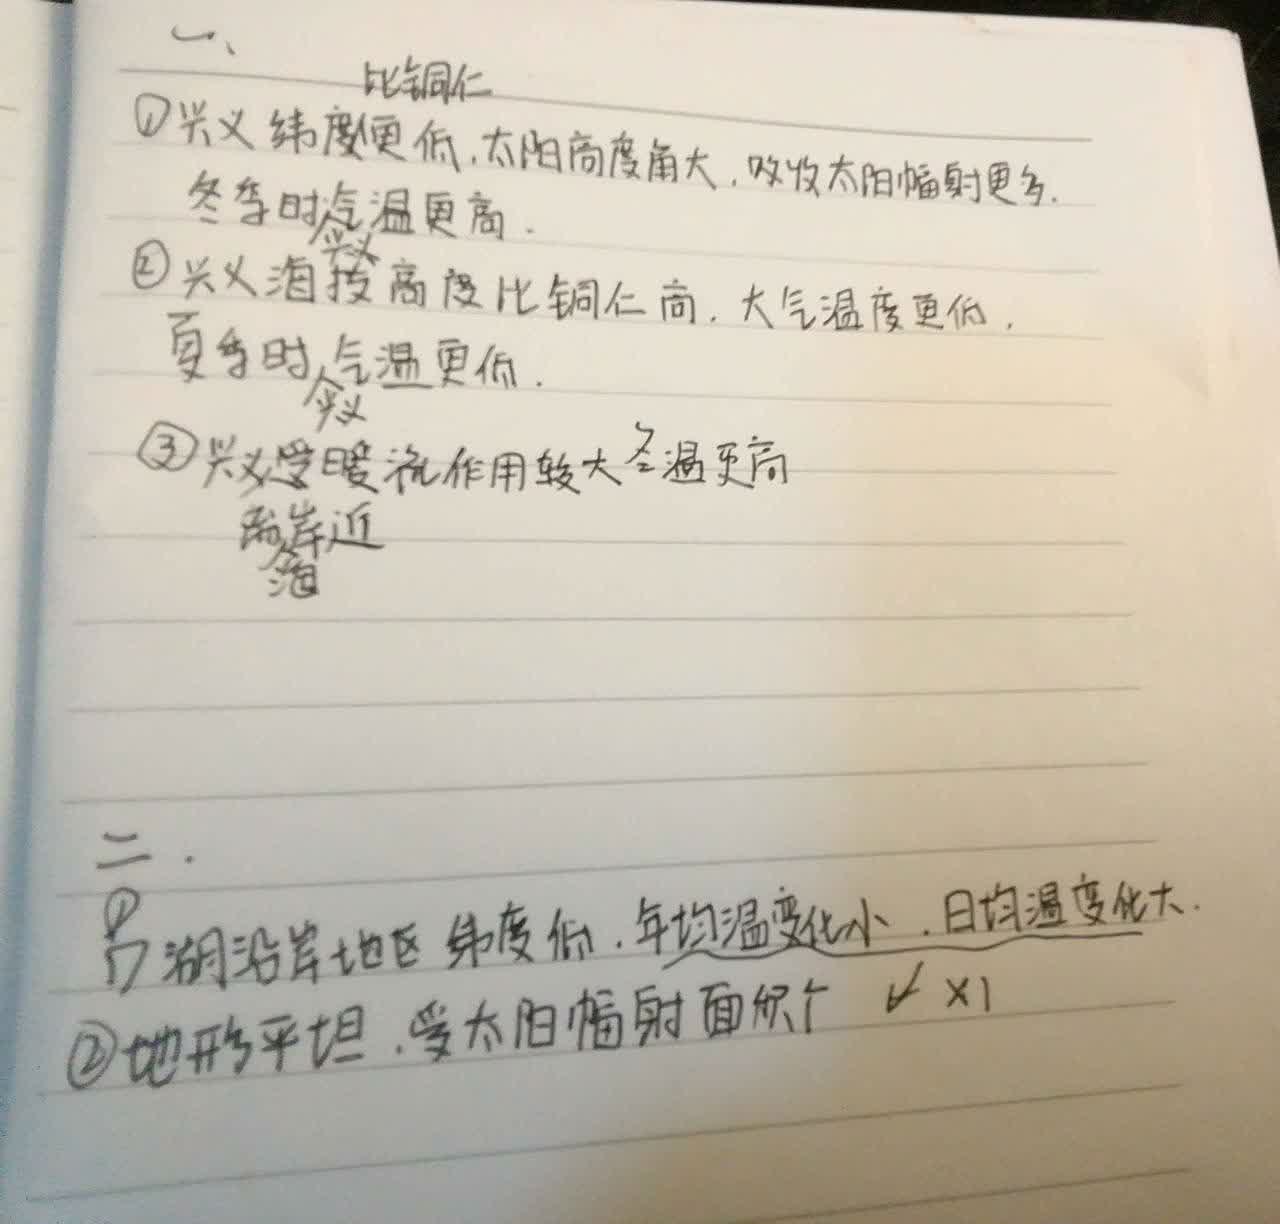 一、
比铜仁
①兴义纬度更低,太阳高度角大,吸收太阳幅射更多.
冬季时气温更高.
兴义
②兴义海拔高度比铜仁高,大气温度更低,
夏季时气温更低.
兴义
③兴义受暖流作用较大 冬温更高
岸近
海
二.
①
湖沿岸地区 纬度低,年均温变化小,日均温变化大.
②地形平坦,受太阳幅射面积个 ✓ ×1